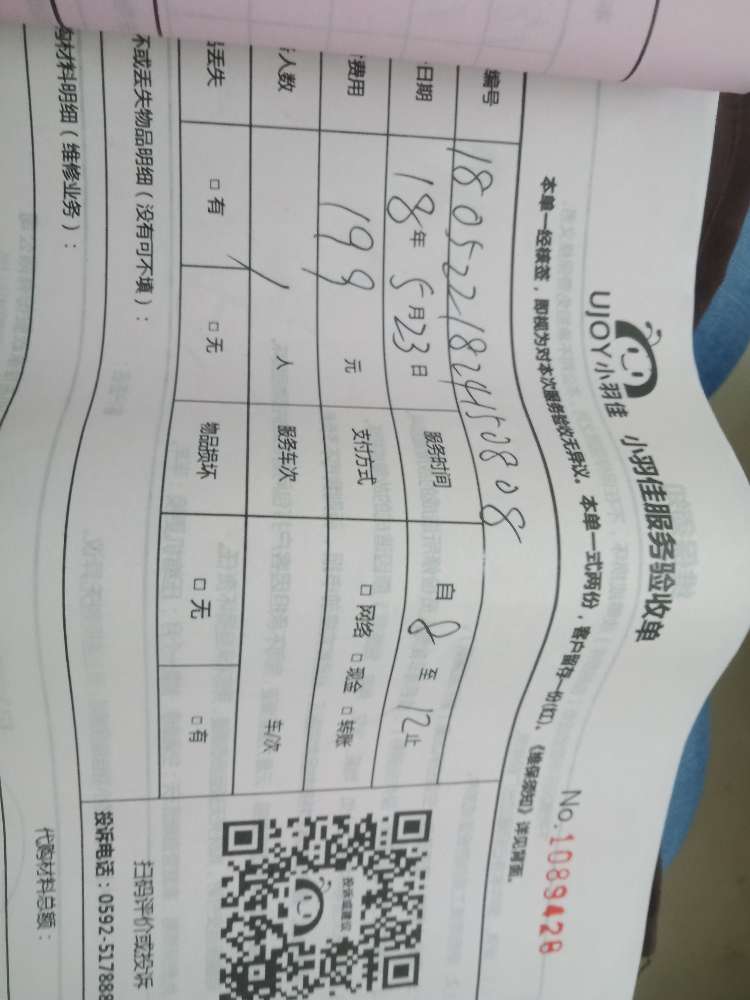 UJOY小羽佳
小羽佳服务验收单
No.1089428
本单一经核签，即视为对本次服务验收无异议。本单一式两份，客户留存一份(红)。《维保须知》详见背面。
编号 18052218241450808
日期 18年5月23日 服务时间 自8至12止
费用 199元 支付方式 □网络 □现金 □转账
人数 1人 服务车次 车/次
丢失 □有 □无 物品损坏 □无 □有
坏或丢失物品明细（没有可不填）：
投诉或建议
扫码评价或投诉
投诉电话：0592-517888
购材料明细（维修业务）：
代购材料总额：